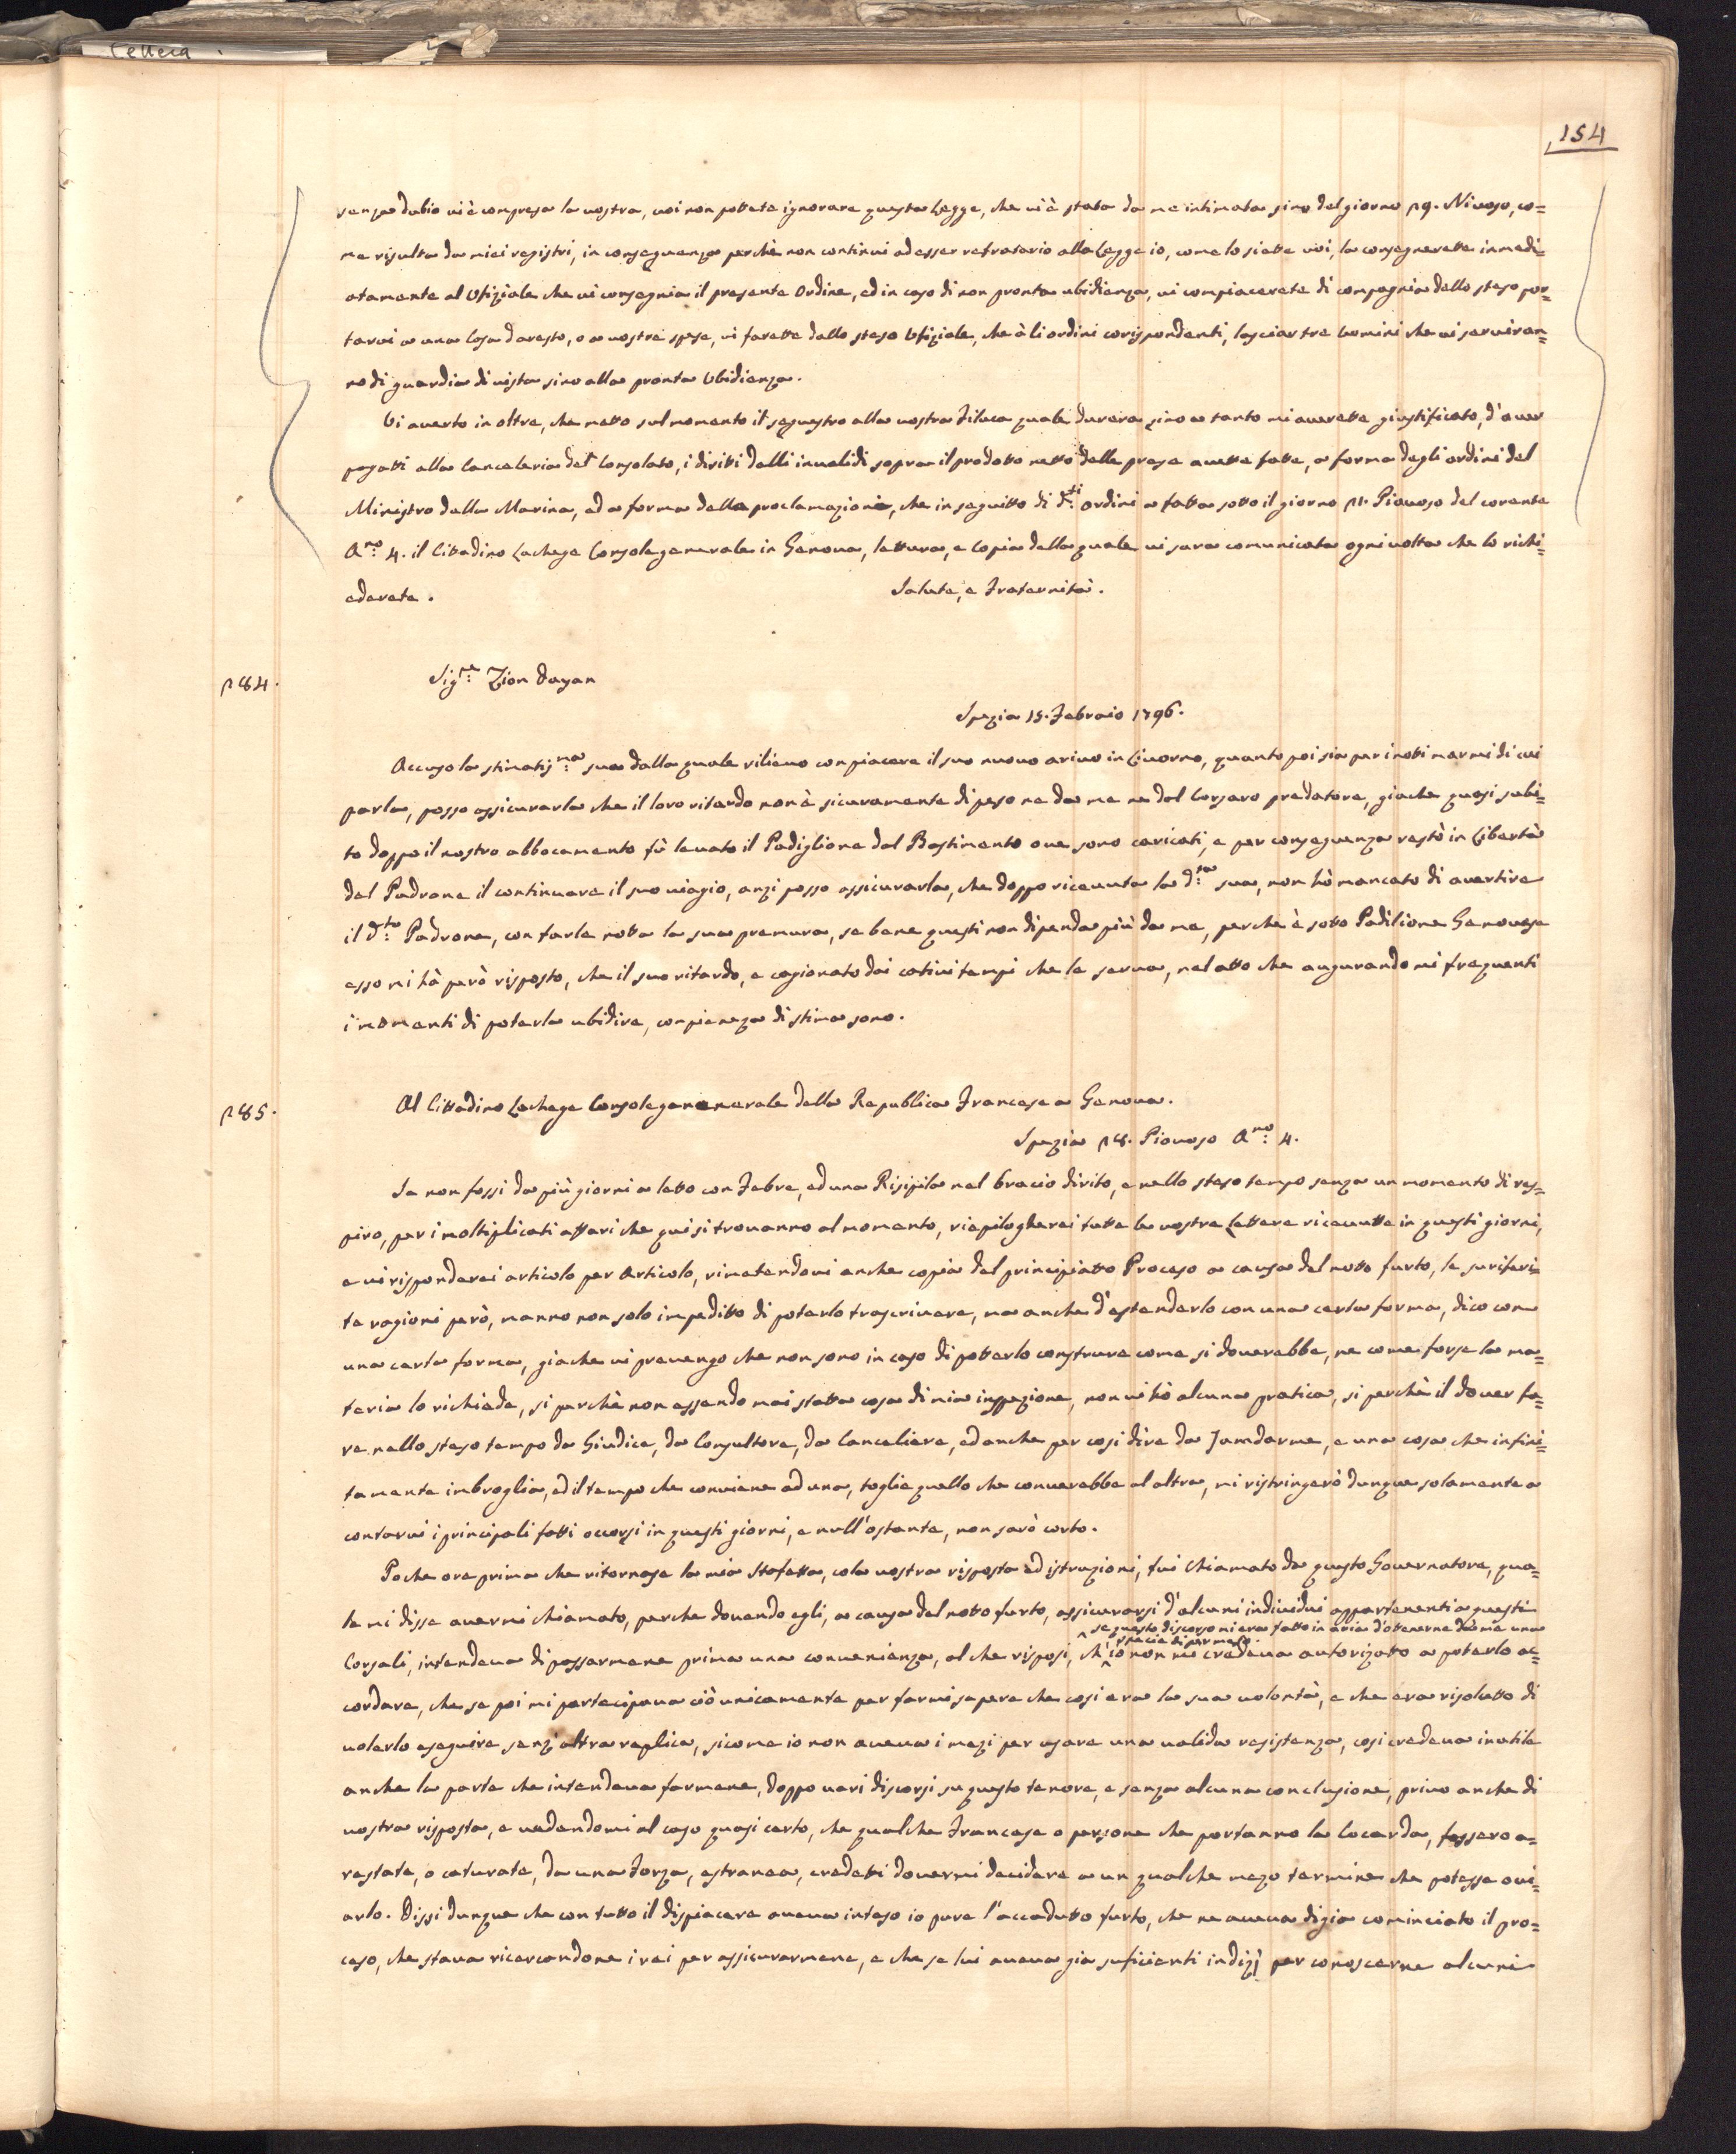 Lettera
154
senza dubio vi è compresa la vostra, voi non pottete ignorare questa Legge, che vi è stata da me intimata sino del giorno 29. Nivoso, co=
me risulta da miei registri, in conseguenza perchè non continui ad esser refratario alla Legge io, come lo siette voi, la consegnerette inmedi=
atamente al Ufiziale che vi consegnia il presente Ordine, ed in caso di non pronta ubidienza, vi compiacerete di compagnia dello steso por=
tarvi a una Casa d'aresto, o a vostre spese, vi farette dallo steso Ufiziale, che à li ordini corispondenti, lasciar tre uomini che vi serviran=
no di guardia di vista sino alla pronta Ubidienza.
Vi averto in oltre, che metto sul momento il sequestro alla vostra Filuca quale durera sino a tanto mi averette giustificato, d'aver
pagatti alla Canceleria del Consolato, i diritti delli invalidi sopra il prodotto netto delle prese avette fatte, a forma degli ordini del
Ministro della Marina, ed a forma della proclamazione, che in seguitto di d.ti ordini a fatta sotto il giorno 21. Piovoso del corente
A.no 4. il Cittadino Lachege Console generale in Genova, lettura, e Copia della quale vi sara comunicata ogni volta che lo richi=
ederete. Salute, e Fraternità.
284. Sig.re Zion Dayan
Spezia 15. Febraio 1796.
Accuso la stimatis.ma sua dalla quale rilievo con piacere il suo nuovo arivo in Livorno, quanto poi sia per i notti marmi di cui
parla, posso assicurarla che il loro ritardo non è sicuramente di peso ne da me ne dal Corsaro predatore, giache quasi subi=
to doppo il nostro abbocamento fù levato il Padiglione dal Bastimento ove sono caricati, e per conseguenza restò in Libertà
del Padrone il continuare il suo viagio, anzi posso assicurarla, che doppo ricevuta la d.ta sua, non hò mancato di avertire
il d.to Padrone, con farle notta la sua premura, se bene questi non dipenda più da me, perche è sotto Padilione Genovese
esso mi hà però risposto, che il suo ritardo, e cagionato dai cativi tempi che le serva, nel atto che augurandomi frequenti
i momenti di poterla ubidire, con pienezza di stima sono.
285. Al Cittadino Lachege Console generale della Republica Francese a Genova.
Spezia 28. Piovoso A.no 4.
Se non fossi da più giorni a letto con Febre, ed una Risipila nel bracio dirito, e nello steso tempo senza un momento di res=
piro, per i moltiplicati affari che qui si trovanno al momento, riepilogherei tutte le vostre Lettere ricevutte in questi giorni,
e vi risponderei articolo per Articolo, rimetendovi anche copia del principiatto Proceso a causa del notto furto, le suriferi=
te ragioni però, m'anno non solo impeditto di poterlo trascrivere, ma anche d'estenderlo con una certa forma, dico con
una certa forma, giache vi prevengo che non sono in caso di potterlo construre come si doverebbe, ne come forse la ma=
teria lo richiede, si perchè non essendo mai statta cosa di mia inspezione, non vi hò alcuna pratica, si perchè il dover fa=
re nello steso tempo da Giudice, da Consultore, da Canceliere, ed anche per cosi dire da Jumdarme, e una cosa che infini=
tamente imbroglia, ed il tempo che conviene ad una, toglie quello che converebbe al altra, mi ristringerò dunque solamente a
contarvi i principali fatti occorsi in questi giorni, e null'ostante, non sarò corto.
Poche ore prima che ritornase la mia Stafetta, cola vostra risposta ed istruzioni, fui Chiamato da questo Governatore, qua=
le mi disse avermi chiamato, perche dovendo egli, a causa del notto furto, assicurarsi d'alcuni individui appartenenti a questi
se questo discorso mi era fatto in aria d'ottenerne da me una
specie di permeso.
Corsali, intendeva di passarmene prima una convenienza, al che risposi, ch'io non mi credeva autorizatto a poterlo ac=
cordare, che se poi mi partecipava ciò unicamente per farmi sapere che cosi era la sua volontà, e che era risolutto di
volerlo eseguire senz'altra replica, sicome io non aveva i mezi per usare una valida resistenza, cosi credeva inutile
anche la parte che intendeva farmene, doppo vari discorsi su questo tenore, e senza alcuna conclusione, privo anche di
vostra risposta, e vedendomi al caso quasi certo, che qualche Francese o persone che portanno la Cocarda, fossero a=
restate, o caturate, da una Forza, estranea, credetti dovermi decidere a un qualche mezo termine che potesse ovi=
arlo. Dissi dunque che con tutto il dispiacere aveva inteso io pure l'accadutto furto, che ne aveva digia cominciato il pro=
ceso, che stava ricercandone i rei per assicurarmene, e che se lui aveva gia suficienti indizj per conoscerne alcuni